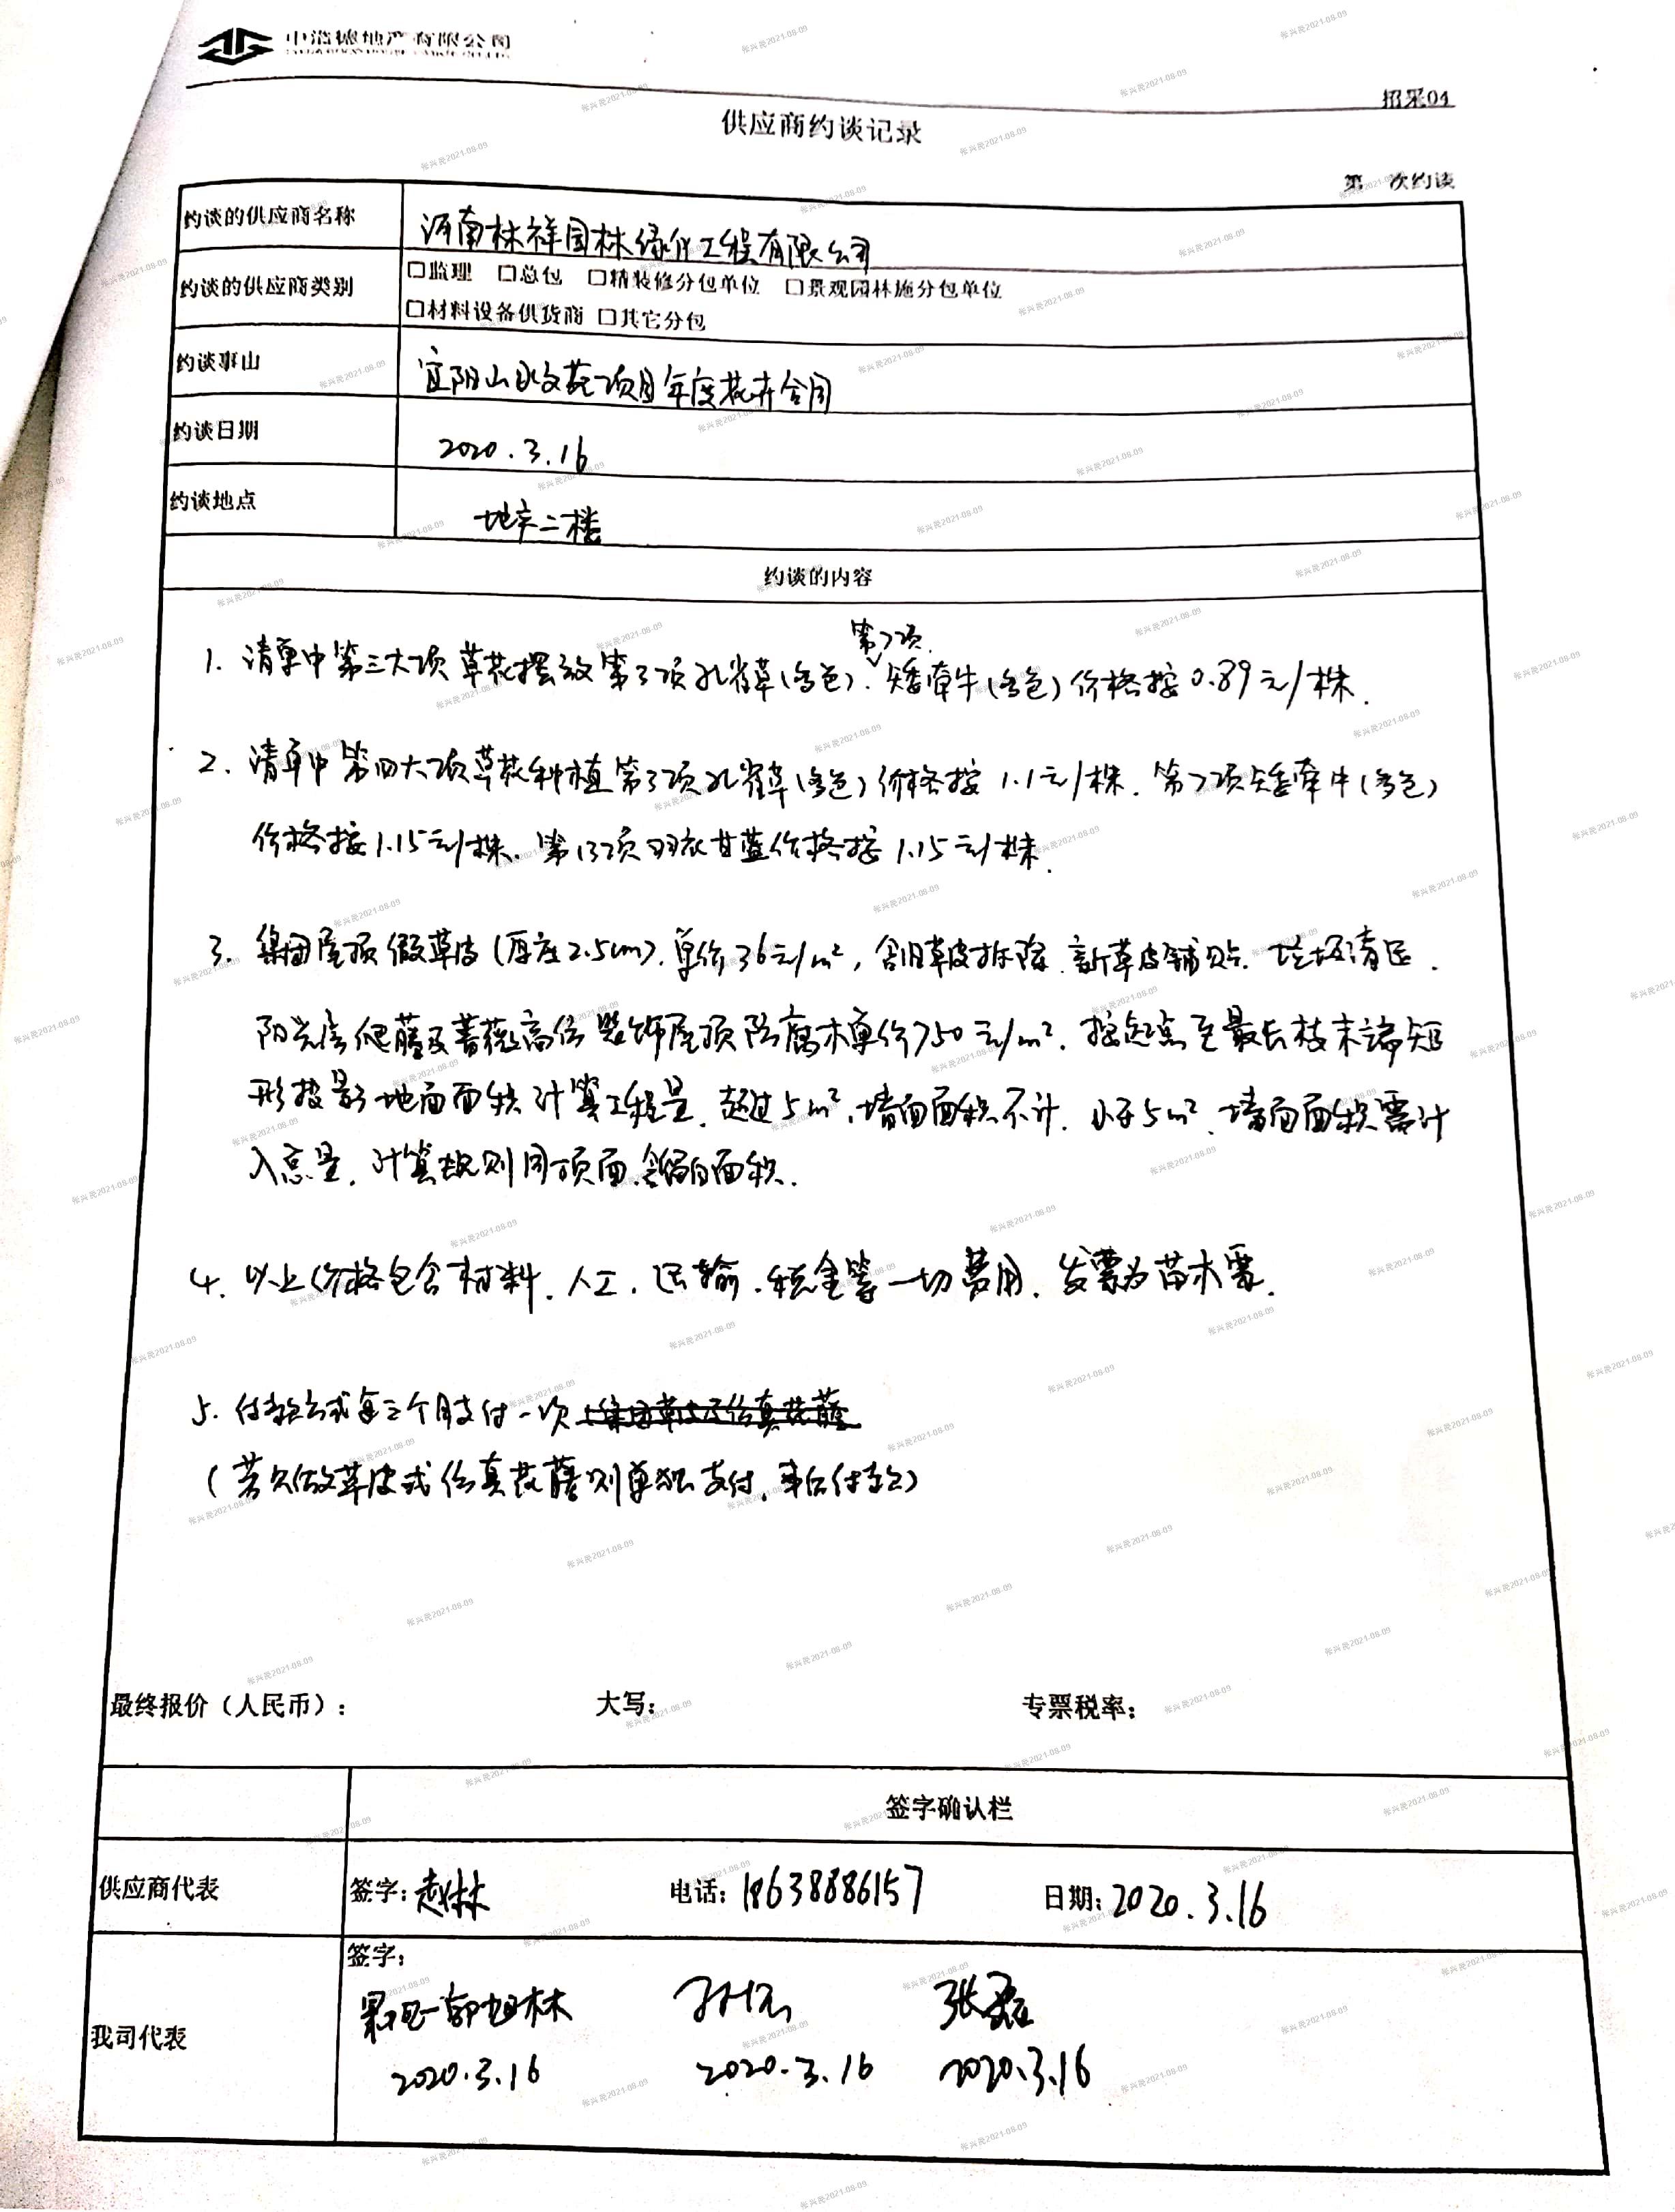 中浩德地产有限公司
招采04
供应商约谈记录
第 次约谈
约谈的供应商名称 河南林祥园林绿化工程有限公司
约谈的供应商类别 □监理 □总包 □精装修分包单位 □景观园林施分包单位
□材料设备供货商 □其它分包
约谈事由 宜阳山水文苑项目年度花卉合同
约谈日期 2020.3.16
约谈地点 地产二楼
约谈的内容
第7项
1. 清单中第三大项草花摆放第3项孔雀草(各色)、矮牵牛(各色)价格按0.89元/株.
2. 清单中第四大项草花种植第3项孔雀草(各色)价格按1.1元/株. 第7项矮牵牛(各色)
价格按1.15元/株、第13项羽衣甘蓝价格按1.15元/株.
3. 集团屋顶假草皮(厚度2.5cm).单价36元/m²,含旧草皮拆除.新草皮铺贴.垃圾清运.
阳光房爬藤及蔷薇高仿装饰屋顶防腐木单价750元/m².按起点至最长枝末端矩
形投影地面面积计算工程量.超过5m²,墙面面积不计.小于5m²,墙面面积需计
入总量,计算规则同顶面.含留白面积.
4. 以上价格包含材料.人工.运输.税金等一切费用.发票为苗木票.
5. 付款方式每三个月支付一次
(若只做草皮或仿真花藤则单独支付.事后付款)
最终报价（人民币）： 大写： 专票税率：
签字确认栏
供应商代表 签字：赵林 电话：18638886157 日期：2020.3.16
签字：
我司代表 郭旭林 张磊
2020.3.16 2020.3.16 2020.3.16
张兴民2021-08-09